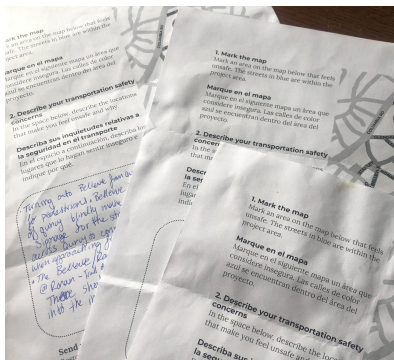 ark the map
an area on the map below that feels
unsafe. The streets in blue are within the
project area.
Marque en el mapa
Marque en el siguiente mapa un área que
considere insegura. Las calles de color
azul se encuentran dentro del área del
proyecto.
2. Describe your transportation safety
concerns
In the space below, describe the locations
that make you feel unsafe and why.
Describa sus inquietudes relativas a
la seguridad en el transporte
En el espacio a continuación, describa los
lugares que lo hagan sentir inseguro e
indique por qué.
Turning onto Bellevue
for pedestrians. Bellevue
blindly
Signage for the
across Quincy to
when approaching
• The Bellevue
@ Ronan
There
into the in
Send
1. Mark the map
Mark an area on the map below that feels
unsafe. The streets in blue are within the
project area.
Marque en el mapa
Marque en el siguiente mapa un área que
considere insegura. Las calles de color
azul se encuentran dentro del área del
proyecto.
2. Describe your transportation safety
concerns
In the s
that m
Desc
la se
En el
lugar
indi
1. Mark the map
Mark an area on the map below that feels
unsafe. The streets in blue are within the
project area.
Marque en el mapa
Marque en el siguiente mapa un área que
considere insegura. Las calles de color
azul se encuentran dentro del área del
proyecto.
2. Describe your transportation safety
concerns
In the space below, describe the locations
that make you feel unsafe and why.
Describa sus
la segu